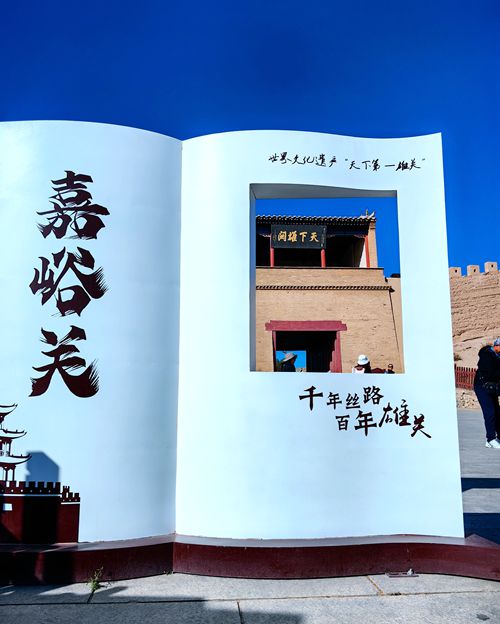 嘉峪关
世界文化遗产“天下第一雄关”
天下雄関
千年丝路
百年雄关